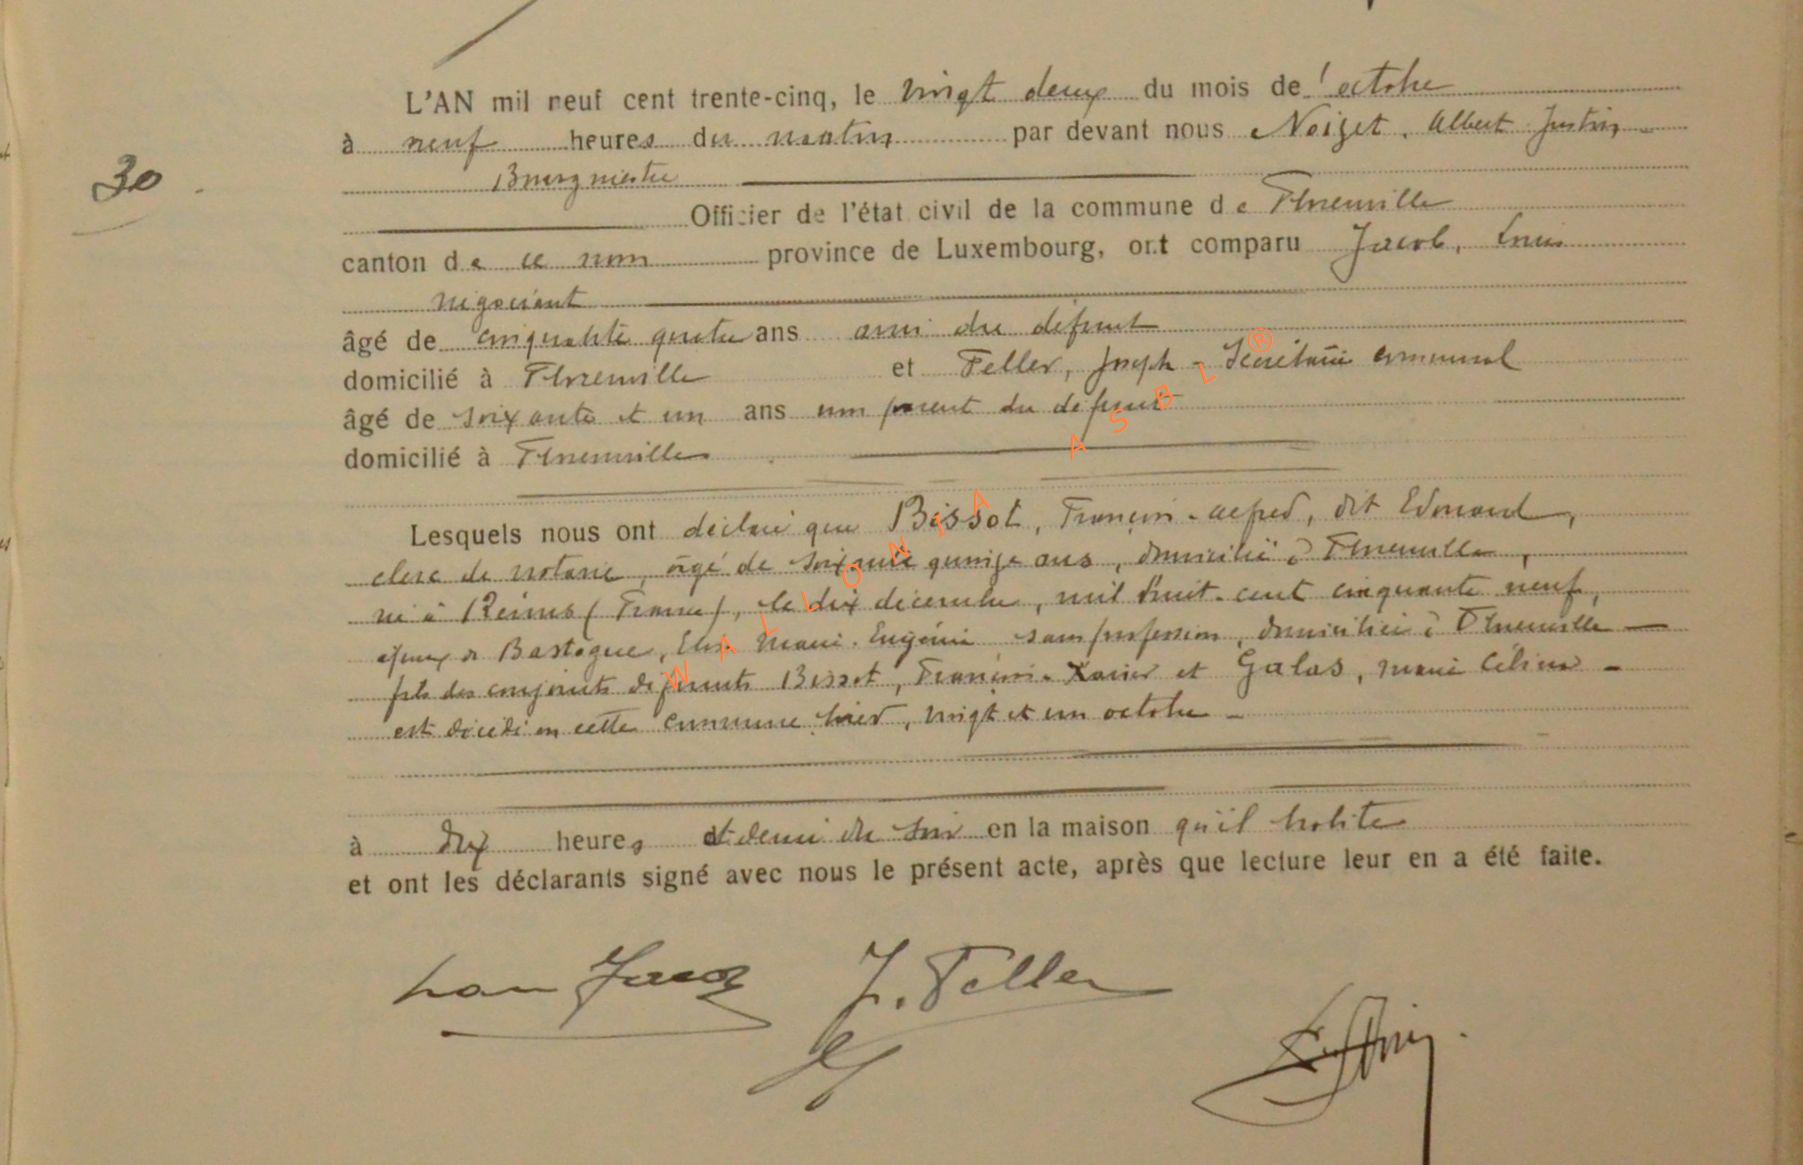 L'AN mil neuf cent trente-cinq, le vingt deux du mois de l'octobre
30
à neuf heures du matin par devant nous Noizet, Albert Justin
Bourgmestre
Officier de l'état civil de la commune de Florenville
canton de ce nom province de Luxembourg, ont comparu Jacob, Louis
négociant
âgé de cinquante quatre ans ami du défunt
domicilié à Florenville et Feller, Joseph - Secrétaire communal
âgé de soixante et un ans non parent du défunt
domicilié à Florenville
Lesquels nous ont déclaré que Bissot, François-Alfred, dit Edmond,
clerc de notaire, âgé de soixante quinze ans, domicilié à Florenville,
né à Reims (France), le dix décembre, mil huit-cent cinquante neuf,
époux de Bastogne, Elise Marie-Eugénie sans profession, domiciliée à Florenville —
fils des conjoints défunts Bissot, François-Xavier et Galas, Marie Céline -
est décédé en cette commune hier, vingt et un octobre -
à dix heures et demi du soir en la maison qu'il habite
et ont les déclarants signé avec nous le présent acte, après que lecture leur en a été faite.
Jacob J. Feller
WALLONIA ASBL ®